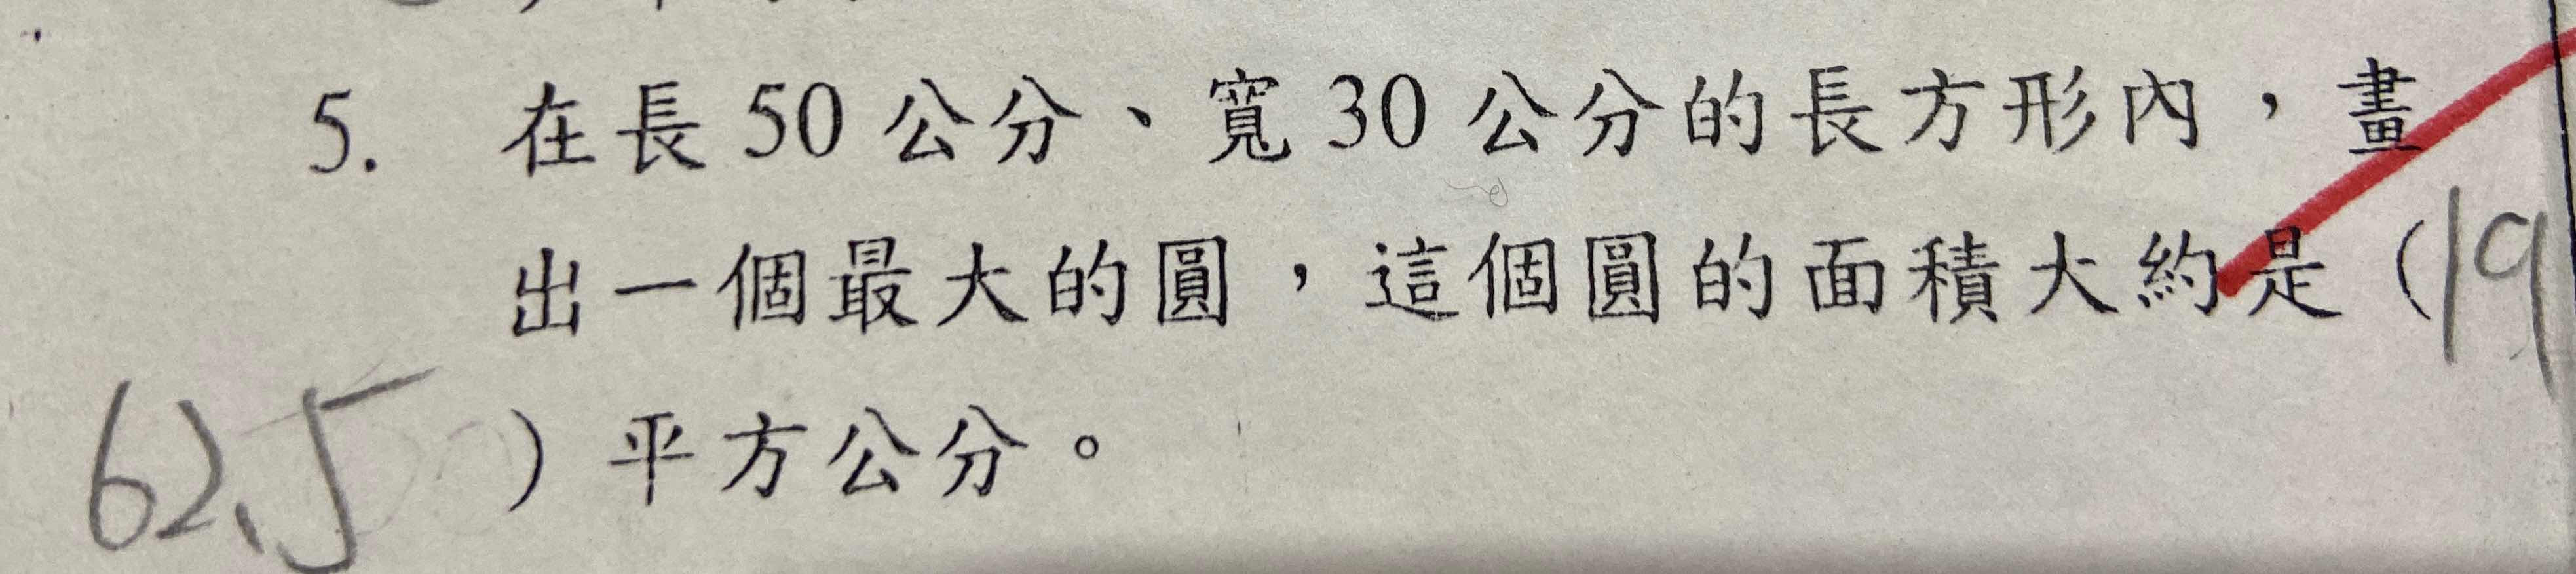 5. 在長 50 公分、寬 30 公分的長方形內，畫
出一個最大的圓，這個圓的面積大約是（19
62.5）平方公分。